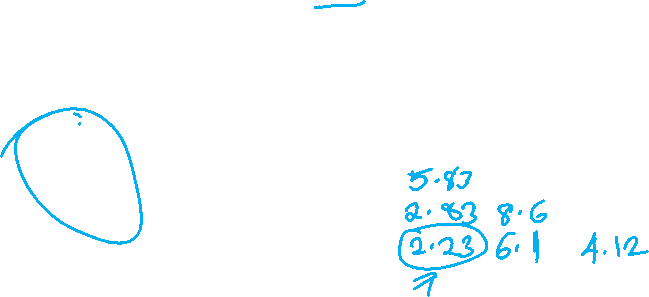 5.83
2.83 8.6
2.23 6.1 4.12